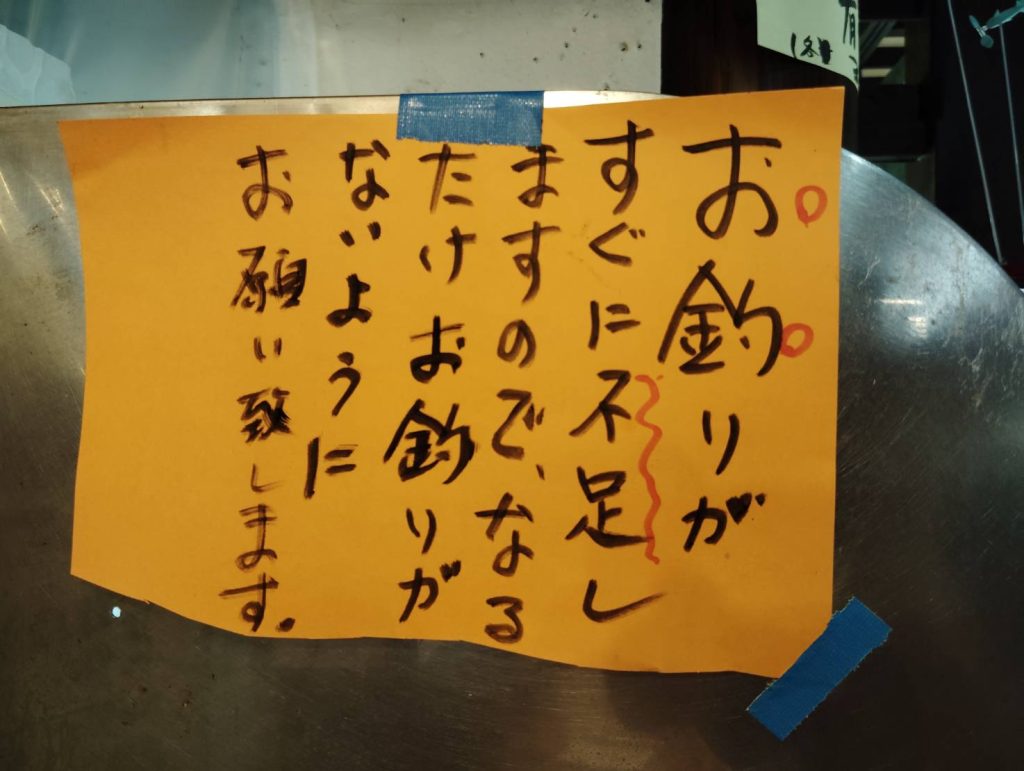 お釣りが
すぐに不足し
ますので、なる
たけお釣りが
ないように
お願い致します。